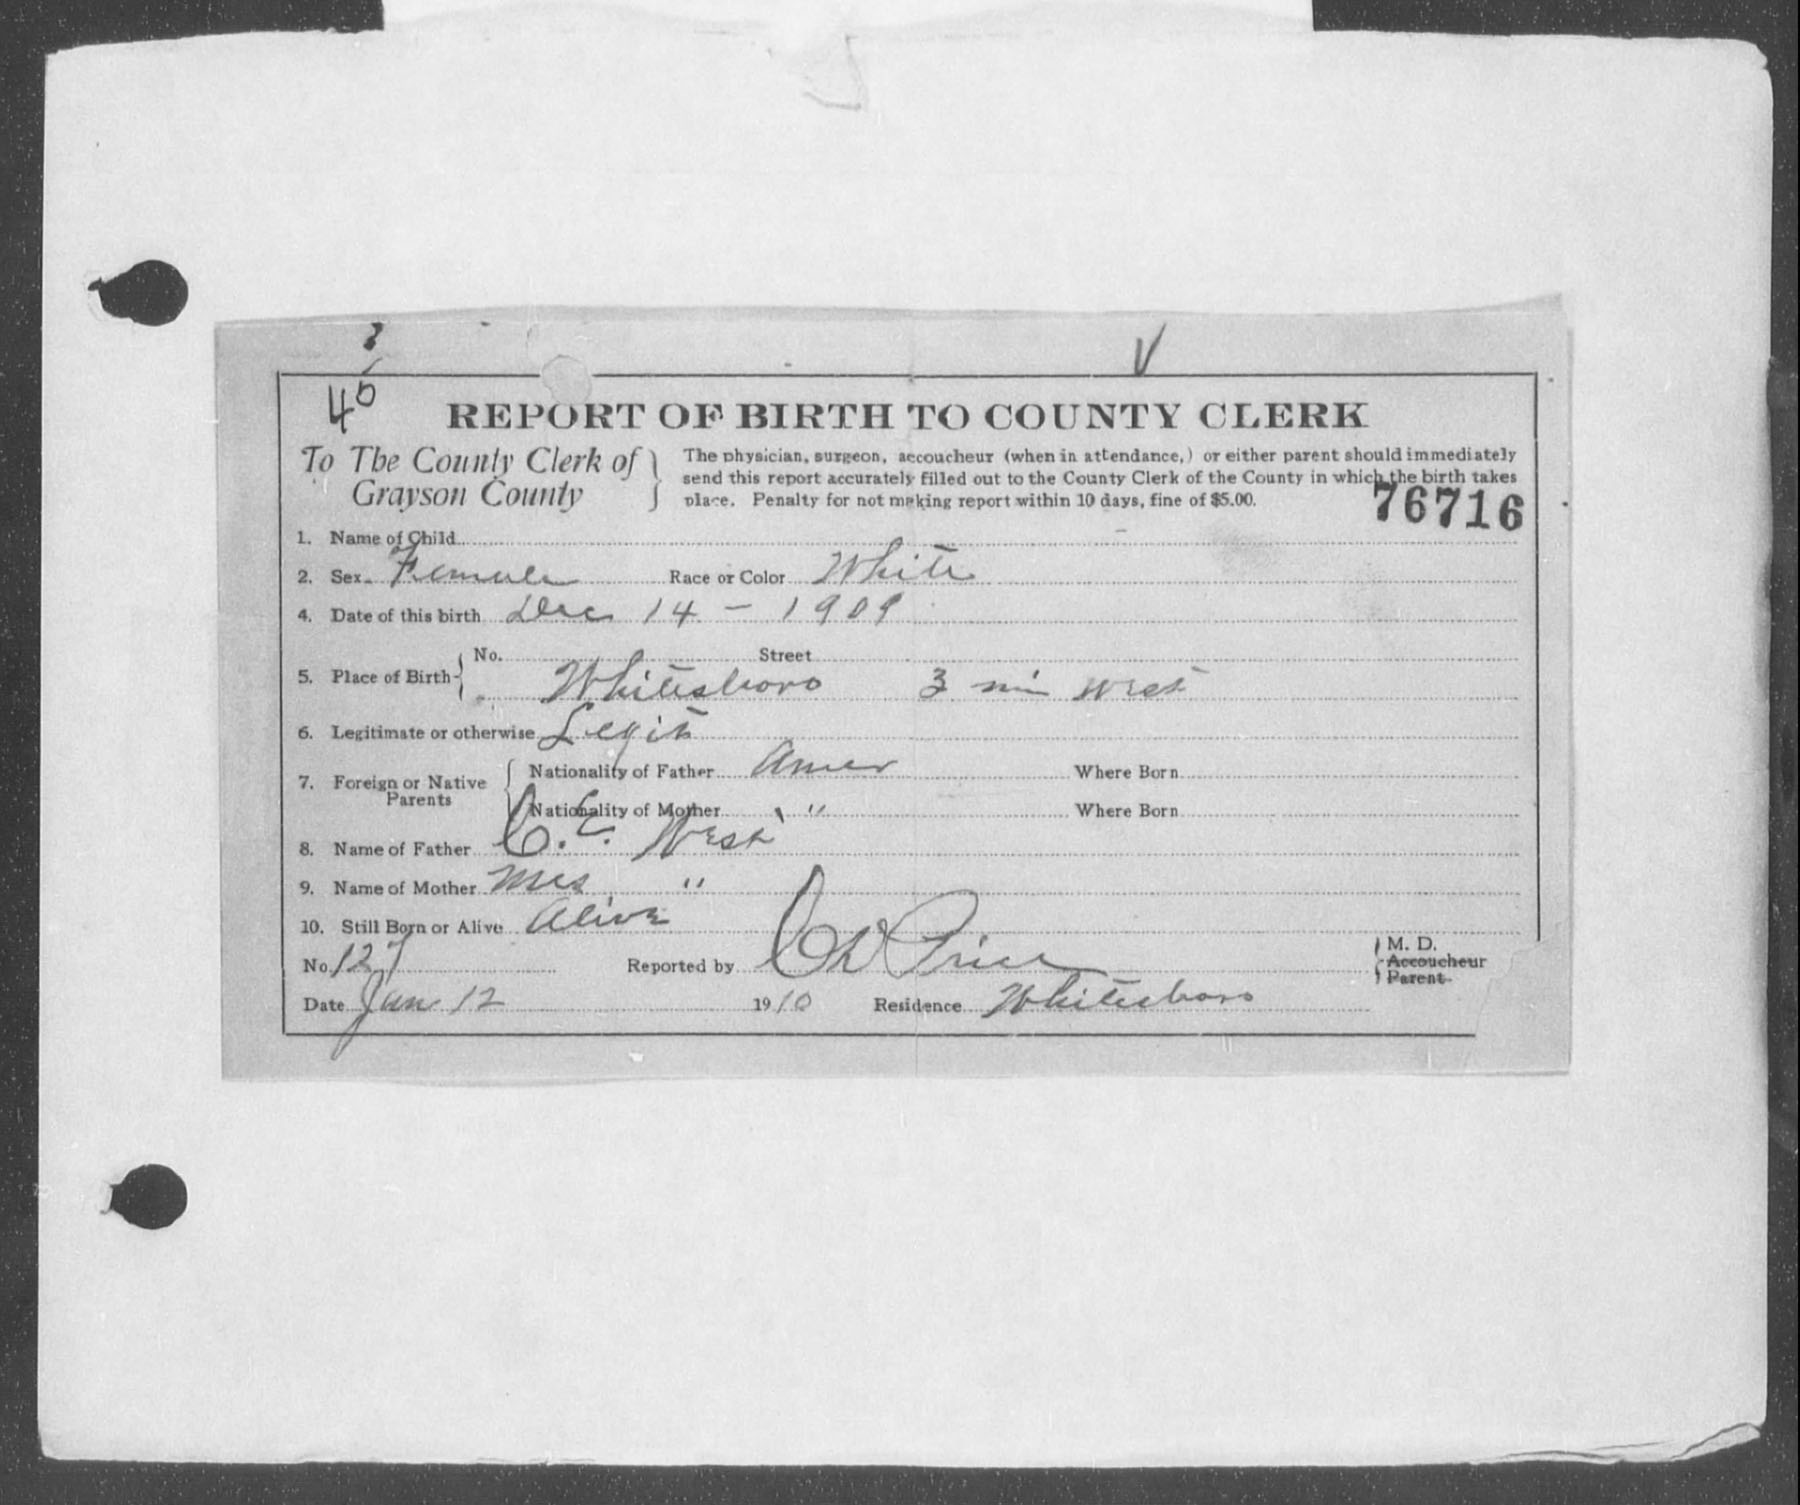 40
REPORT OF BIRTH TO COUNTY CLERK
To The County Clerk of
Grayson County
The physician, surgeon, accoucheur (when in attendance,) or either parent should immediately
send this report accurately filled out to the County Clerk of the County in which the birth takes
place. Penalty for not making report within 10 days, fine of $5.00.
76716
1. Name of Child
2. Sex Female Race or Color White
4. Date of this birth Dec 14 - 1909
5. Place of Birth No. Street
Whitesboro 3 mi West
6. Legitimate or otherwise Legit
7. Foreign or Native Parents
Nationality of Father Amer Where Born
Nationality of Mother " Where Born
8. Name of Father C. C. West
9. Name of Mother Mrs "
10. Still Born or Alive Alive
No. 127 Reported by Price M. D.
Accoucheur
Parent
Date Jan 12 1910 Residence Whitesboro